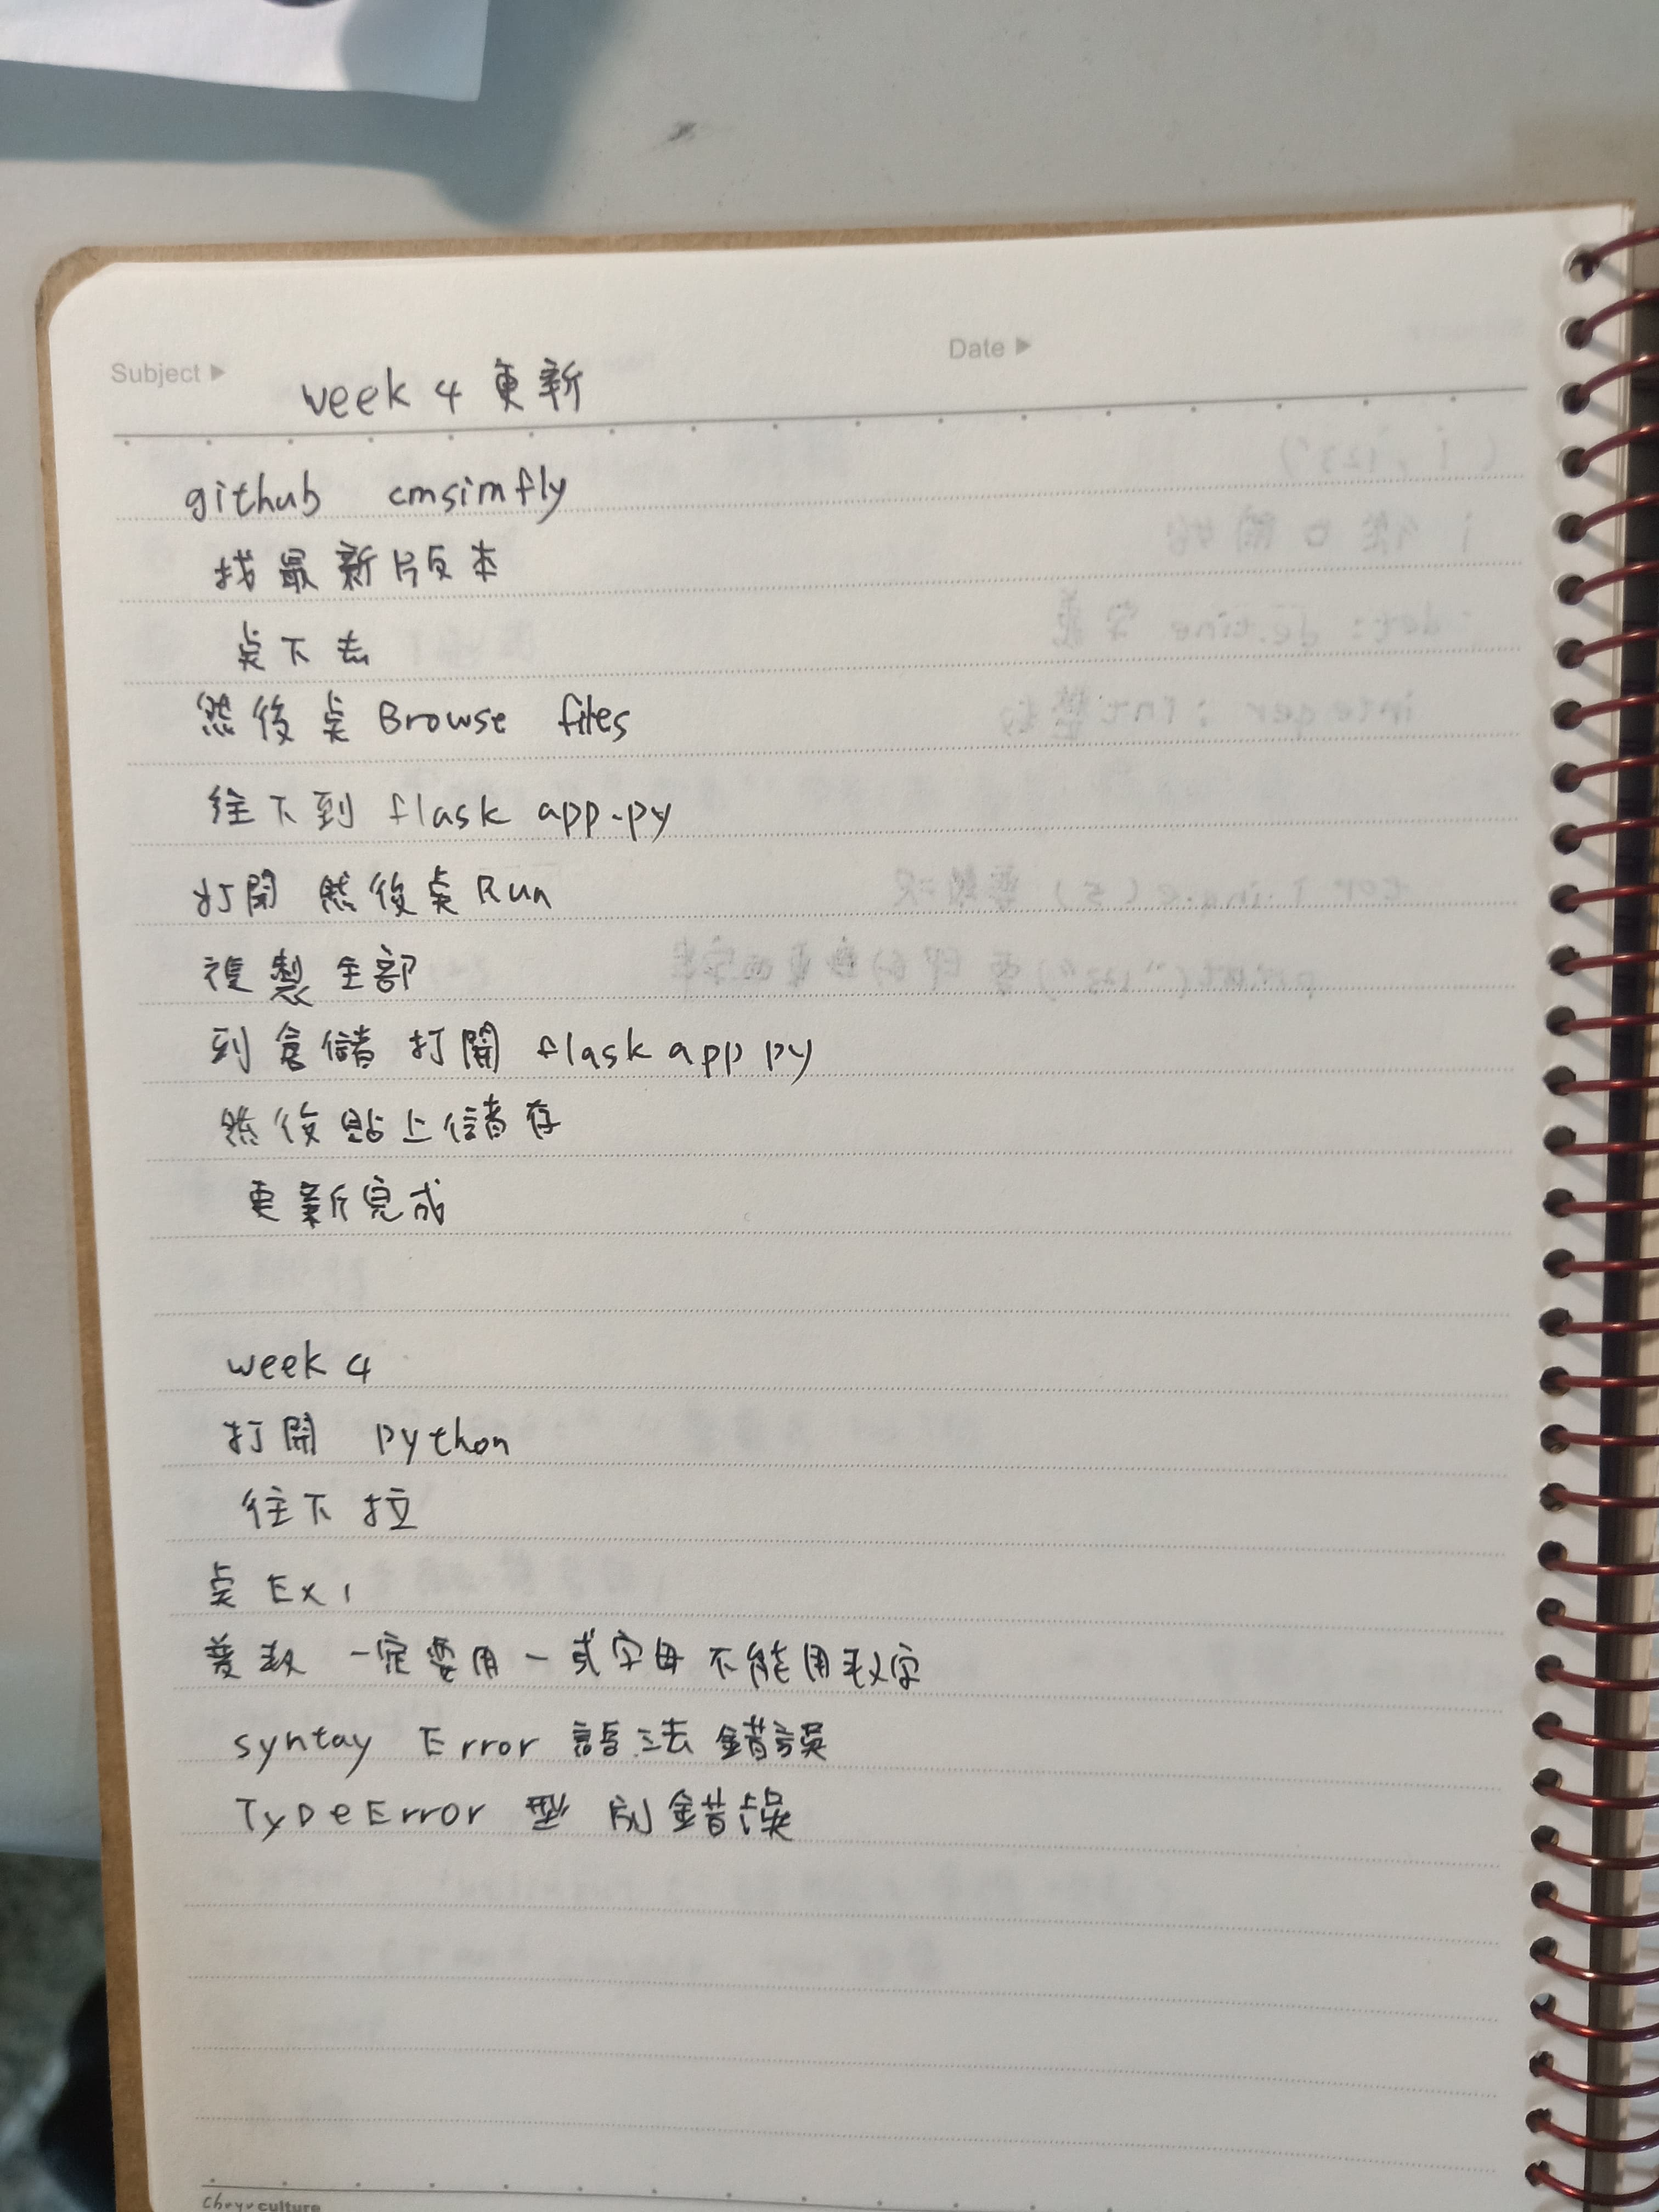 Subject ▶ week 4 更新
Date ▶
github cmsimfly
找最新版本
点下去
然後点 Browse files
往下到 flask app.py
打開 然後点 Run
複製全部
到倉儲 打開 flask app py
然後貼上儲存
更新完成
week 4
打開 python
往下拉
点 Ex1
一定要用一或字母 不能用数字
syntay Error 語法 錯誤
TypeError 型別錯誤
culture